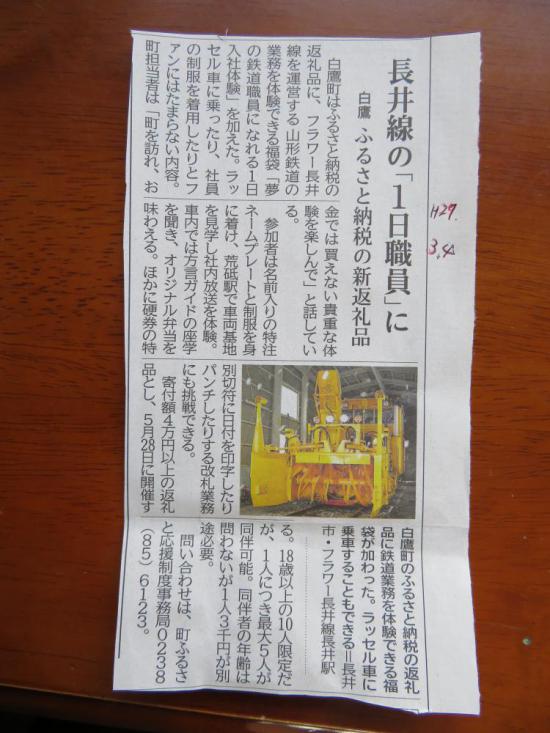 長井線の「1日職員」に
白鷹 ふるさと納税の新返礼品
白鷹町はふるさと納税の
返礼品に、フラワー長井
線を運営する山形鉄道の
業務を体験できる福袋「夢
の鉄道職員になれる1日
入社体験」を加えた。ラッ
セル車に乗ったり、社員
の制服を着用したりとフ
ァンにはたまらない内容。
町担当者は「町を訪れ、お
金では買えない貴重な体
験を楽しんで」と話してい
る。
参加者は名前入りの特注
ネームプレートと制服を身
に着け、荒砥駅で車両基地
を見学し社内放送を体験。
車内では方言ガイドの座学
を聞き、オリジナル弁当を
味わえる。ほかに硬券の特
別切符に日付を印字したり
パンチしたりする改札業務
にも挑戦できる。
寄付額4万円以上の返礼
品とし、5月28日に開催す
る。18歳以上の10人限定だ
が、1人につき最大5人が
同伴可能。同伴者の年齢は
問わないが1人3千円が別
途必要。
問い合わせは、町ふるさ
と応援制度事務局0238
(85)6123。
白鷹町のふるさと納税の返礼
品に鉄道業務を体験できる福
袋が加わった。ラッセル車に
乗車することもできる＝長井
市・フラワー長井線長井駅
H29.
3.4